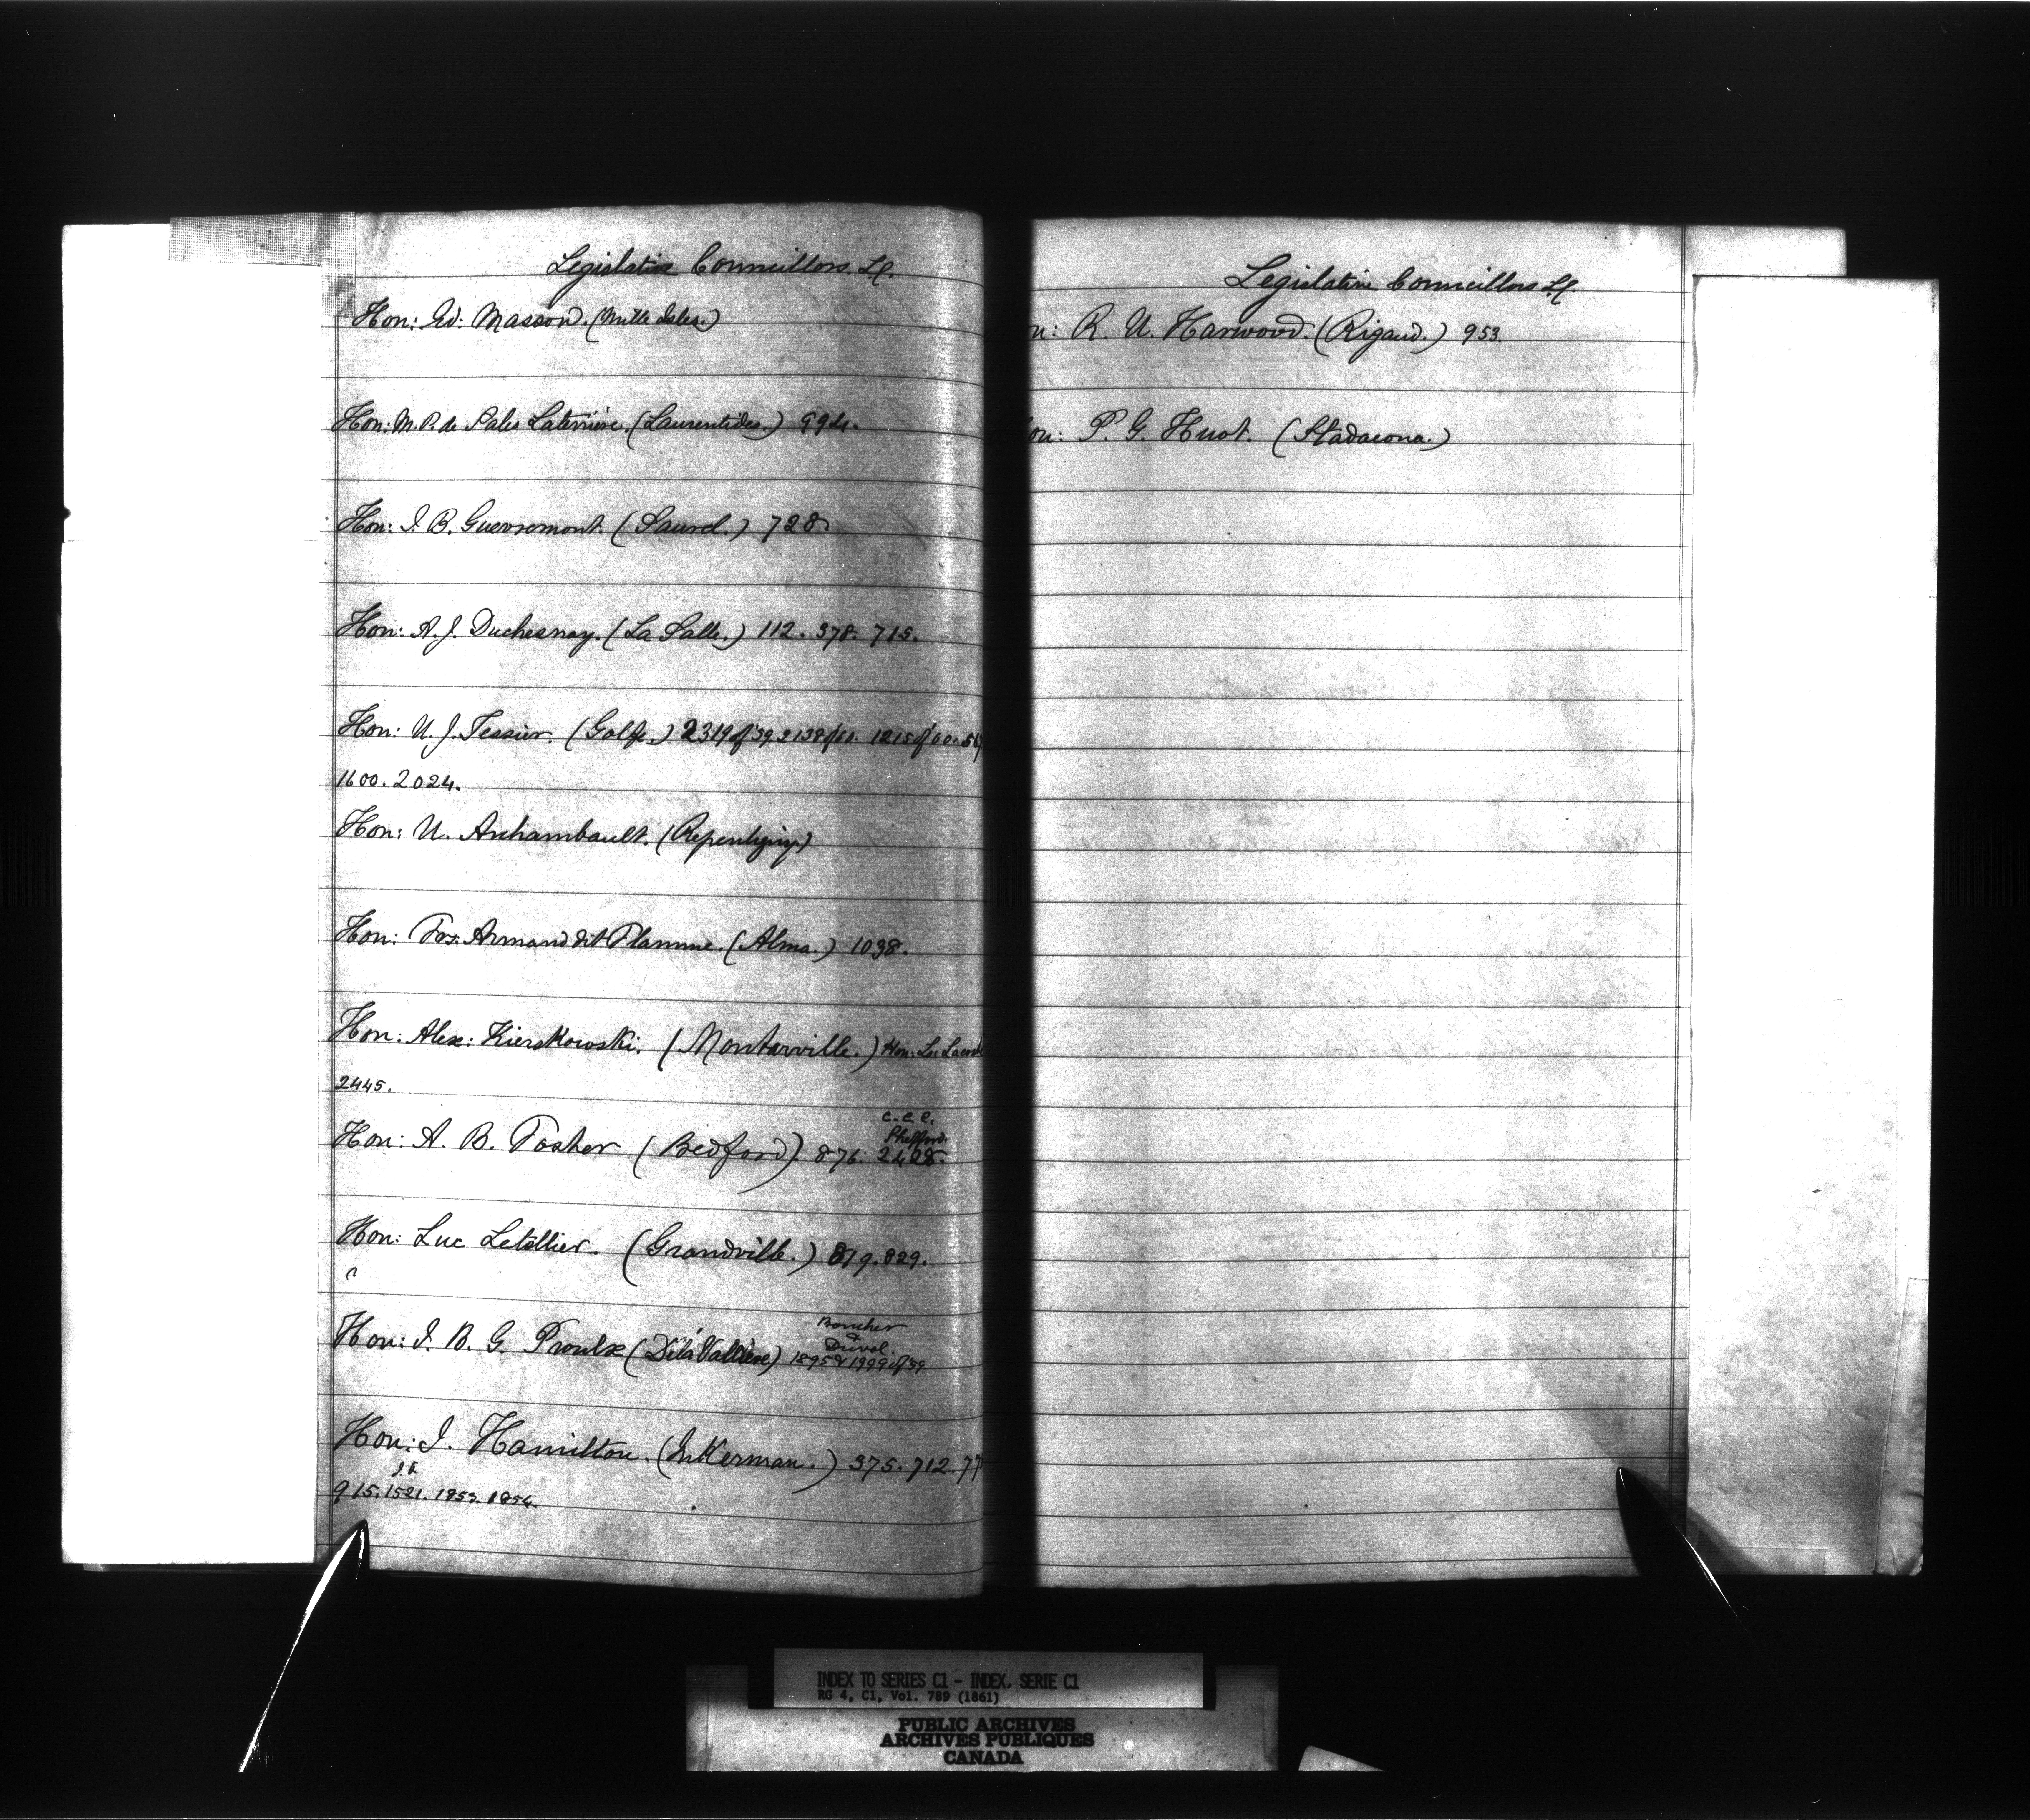 Legislative Councillors L.C.
Hon: Ed: Masson. (Mille Isles.)
Hon: M. P. de Sales Laterrière. (Laurentides.) 994.
Hon: J. B. Guevremont. (Saurel.) 728.
Hon: A. J. Duchesnay. (La Salle.) 112. 378. 715.
Hon: U. J. Tessier. (Golfe.) 2319 of '59 2138 of 60. 1215 of 60.
1600. 2024.
Hon: U. Archambault. (Repentigny)
Hon: Frs. Armand dit Flamme. (Alma.) 1038.
Hon: Alex: Kierskowski. (Montarville.) Hon: Ls
2445.
Hon: A. B. Foster (Bedford). 876. 2428.
Shefford.
Hon: Luc Letellier. (Grandville.) 819. 829.
Boucher
&
Duval.
Hon: J. B. G. Proulx (De la Vallière) 1895 & 1999 of 59
Hon: J. Hamilton. (Inkerman.) 375. 712. 77
915. 1521. 1853. 1854.
Legislative Councillors L.C.
R. U. Harwood. (Rigaud.) 953.
P. G. Huot. (Stadacona.)
INDEX TO SERIES C1 - INDEX, SERIE C1
RG 4, C1, Vol. 789 (1861)
PUBLIC ARCHIVES
ARCHIVES PUBLIQUES
CANADA